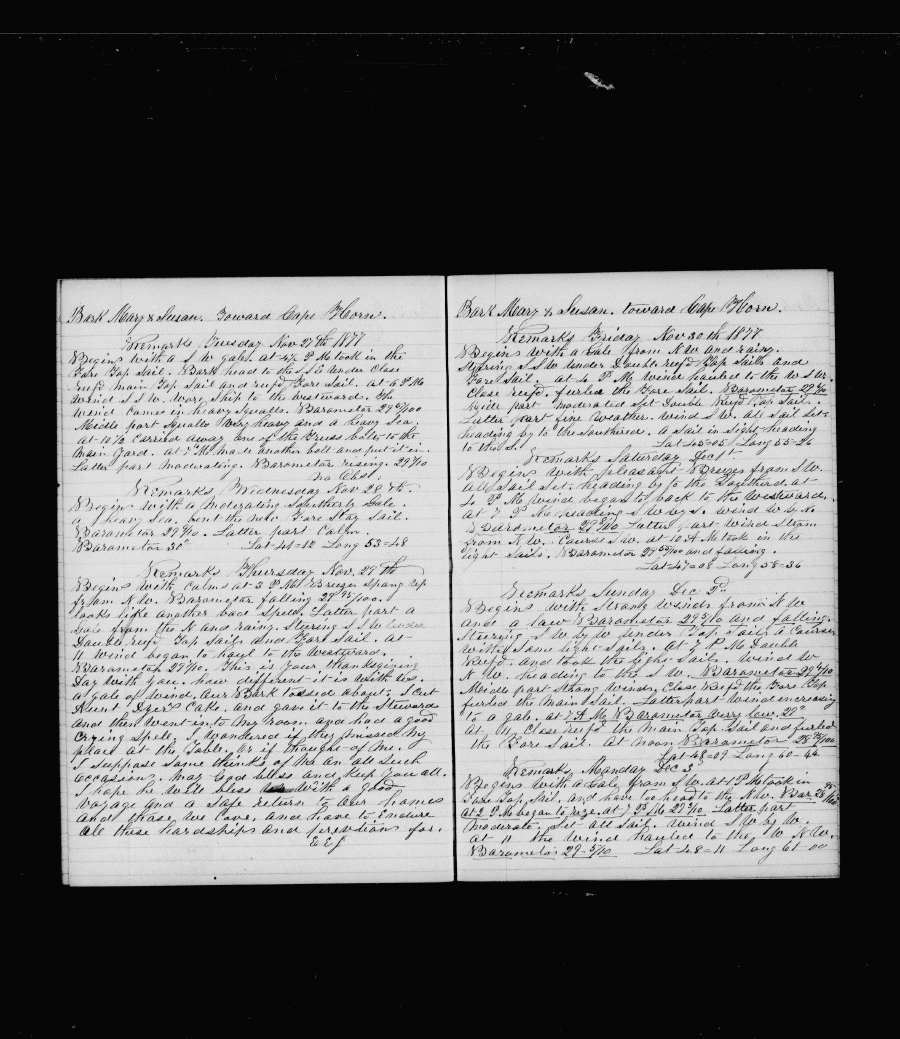 Bark Mary & Susan. Toward Cape Horn.
Remarks Tuesday Nov 27th 1877
Begins with a S W gale. at 4 P M took in the
Fore Top Sail. Bark head to the S E under Close
reefd main Top Sail and reefd Fore Sail. at 6 P M
Wind S S W. Wore Ship to the westward. The
wind comes in heavy Squalls. Barometer 29
Middle part Squally Very heavy and a heavy Sea.
at 10 carried away one of the Truss bolts to the
Main Yard. at made another bolt and put it in.
Latter part Moderating. Barometer rising. 29
No Obst.
Remarks Wednesday Nov 28th.
Begins with a Moderating Southerly Gale.
a heavy Sea. bent the new Fore Stay Sail.
Barometer 29 /10. Latter part Calm.
Barometer 30° Lat 44=12 Long 53=48
Remarks Thursday Nov. 29th
Begins with Calm at 3 P M Breeze Spang up
from N W. Barometer falling 29 /100.
looks like another bad Spell. Latter part a
Gale from the N and rainy. Steering S S W under
Double reefd Top Sails and Fore Sail. at
11 wind began to haul to the Westward.
Barometer 29 /10. This is your thanksgiving
Day with you. how different it is with us.
a gale of wind, our Bark tossed about. I Cut
Aunt Dyer's Cake. and gave it to the Steward
and then went into my room. and had a good
Crying Spell. I wondered if they missed My
place at the Table. or if thought of me.
I suppose Some thinks of Me an all Such
Occasions. May God bless and keep you all.
I hope he will bless us with a good
Voyage and a Safe return to our homes
and those we Love. and have to Endure
all these hardships and privations for.
Bark Mary & Susan. toward Cape Horn.
Remarks Friday Nov 30th 1877
Begins with a Gale from N W and rainy.
Stefring S S W under Double reefd Top Sails and
Fore Sail. at 4 P M wind hauled to the W S W.
Close reefd. furled the Fore Sail. Barometer 29 /10
Midle part moderated Set Double Reefd Top Sail.
Latter part fine Weather. wind S W. all Sail Set.
heading by to the Southerd. A Sail in Sight heading
to the S. Lat 45=05 Long 55=26
Remarks Saturday Dec 1st
Begins with pleasant Breezes from S W.
all Sail Set. heading by to the Southerd. at
4 P M wind began to back to the Westward.
at 7 P M heading S W by S. wind W by N.
Barometer 29 /10 Latter part wind Steam
from N W. Course S W. at 10 A M took in the
light Sails. Barometer 29 /100 and falling.
Lat 47=08 Long 58=36
Remarks Sunday Dec 2d
Begins with Strong winds from N W
and a law Barometer 29 /10 and falling.
Steering S W by W under Top Sails & Courses
with Some light Sails. at P M Double
Reefd. and took the light Sails. Wind W
N W. heading to the S W. Barometer 29 /10
Midle part Strong Winds, Close Reefd the Fore Top
furled the Main Sail. Latter part wind increasing
to a gale. at 7 A M Barometer Verry law. 29°
At 11 Close reefd the Main Top Sail and furled
the Fore Sail. At Noon Barometer 28 /100
Lat 48=09 Long 60=44
Remarks Monday Dec 3
Begins with a Gale from S W. at 1 P M took in
Fore Top Sail. and have too head to the N W. Bar 28
at 2 P M began to rize. at 7 P M 29 /10. Latter part
Moderate. Set all Sail. Wind S W by W.
at 11 the wind hauled to the W N W.
Barometer 29-5/10 Lat 48=11 Long 61-00